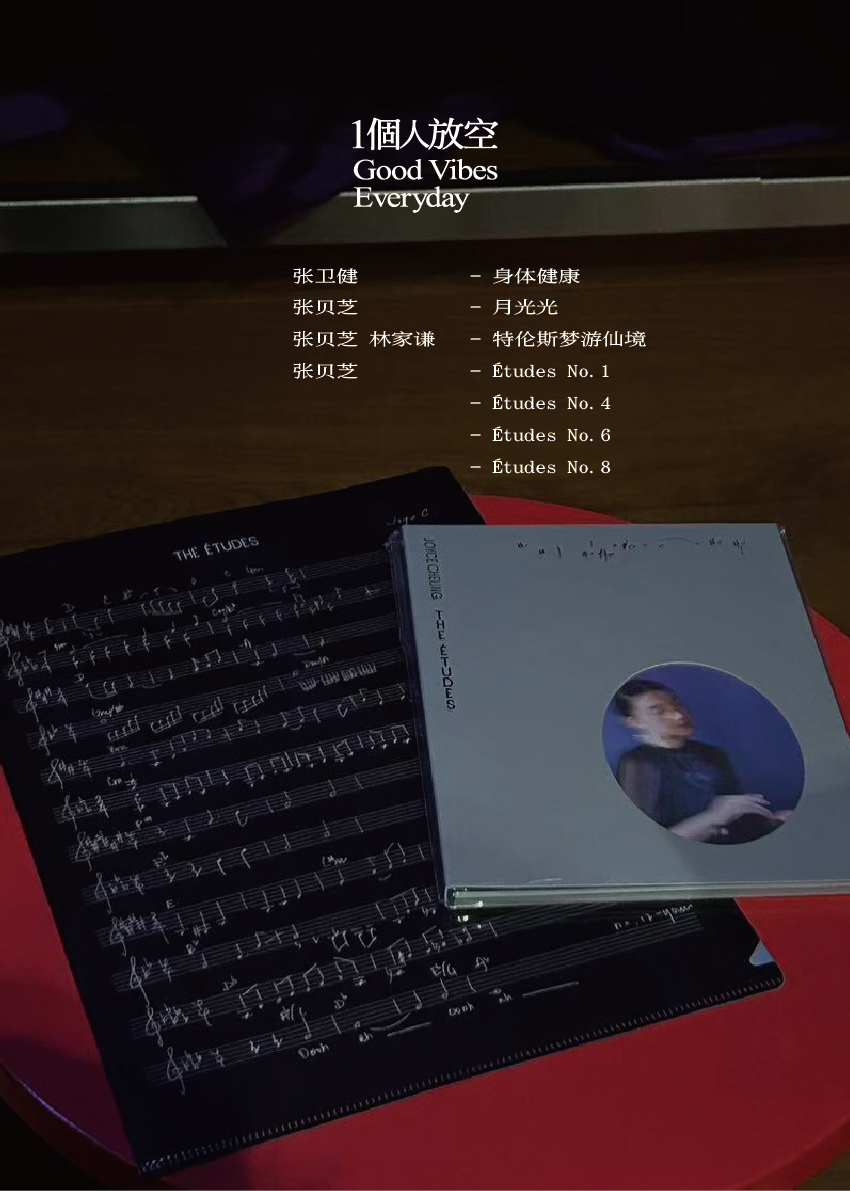 1個人放空
Good Vibes
Everyday
张卫健 - 身体健康
张贝芝 - 月光光
张贝芝 林家谦 - 特伦斯梦游仙境
张贝芝 - Études No.1
- Études No.4
- Études No.6
- Études No.8
THE ÉTUDES
Joyce C
JOYCE CHEUNG THE ÉTUDES
Oooh
ah
Oooh
ah